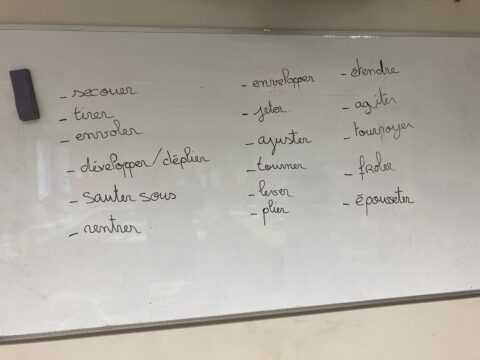 - secouer
- tirer
- enrober
- développer/déplier
- sauter sous
- rentrer
- envelopper
- jeter
- ajuster
- tourner
- lever
- plier
- étendre
- agiter
- tournoyer
- froler
- épousseter